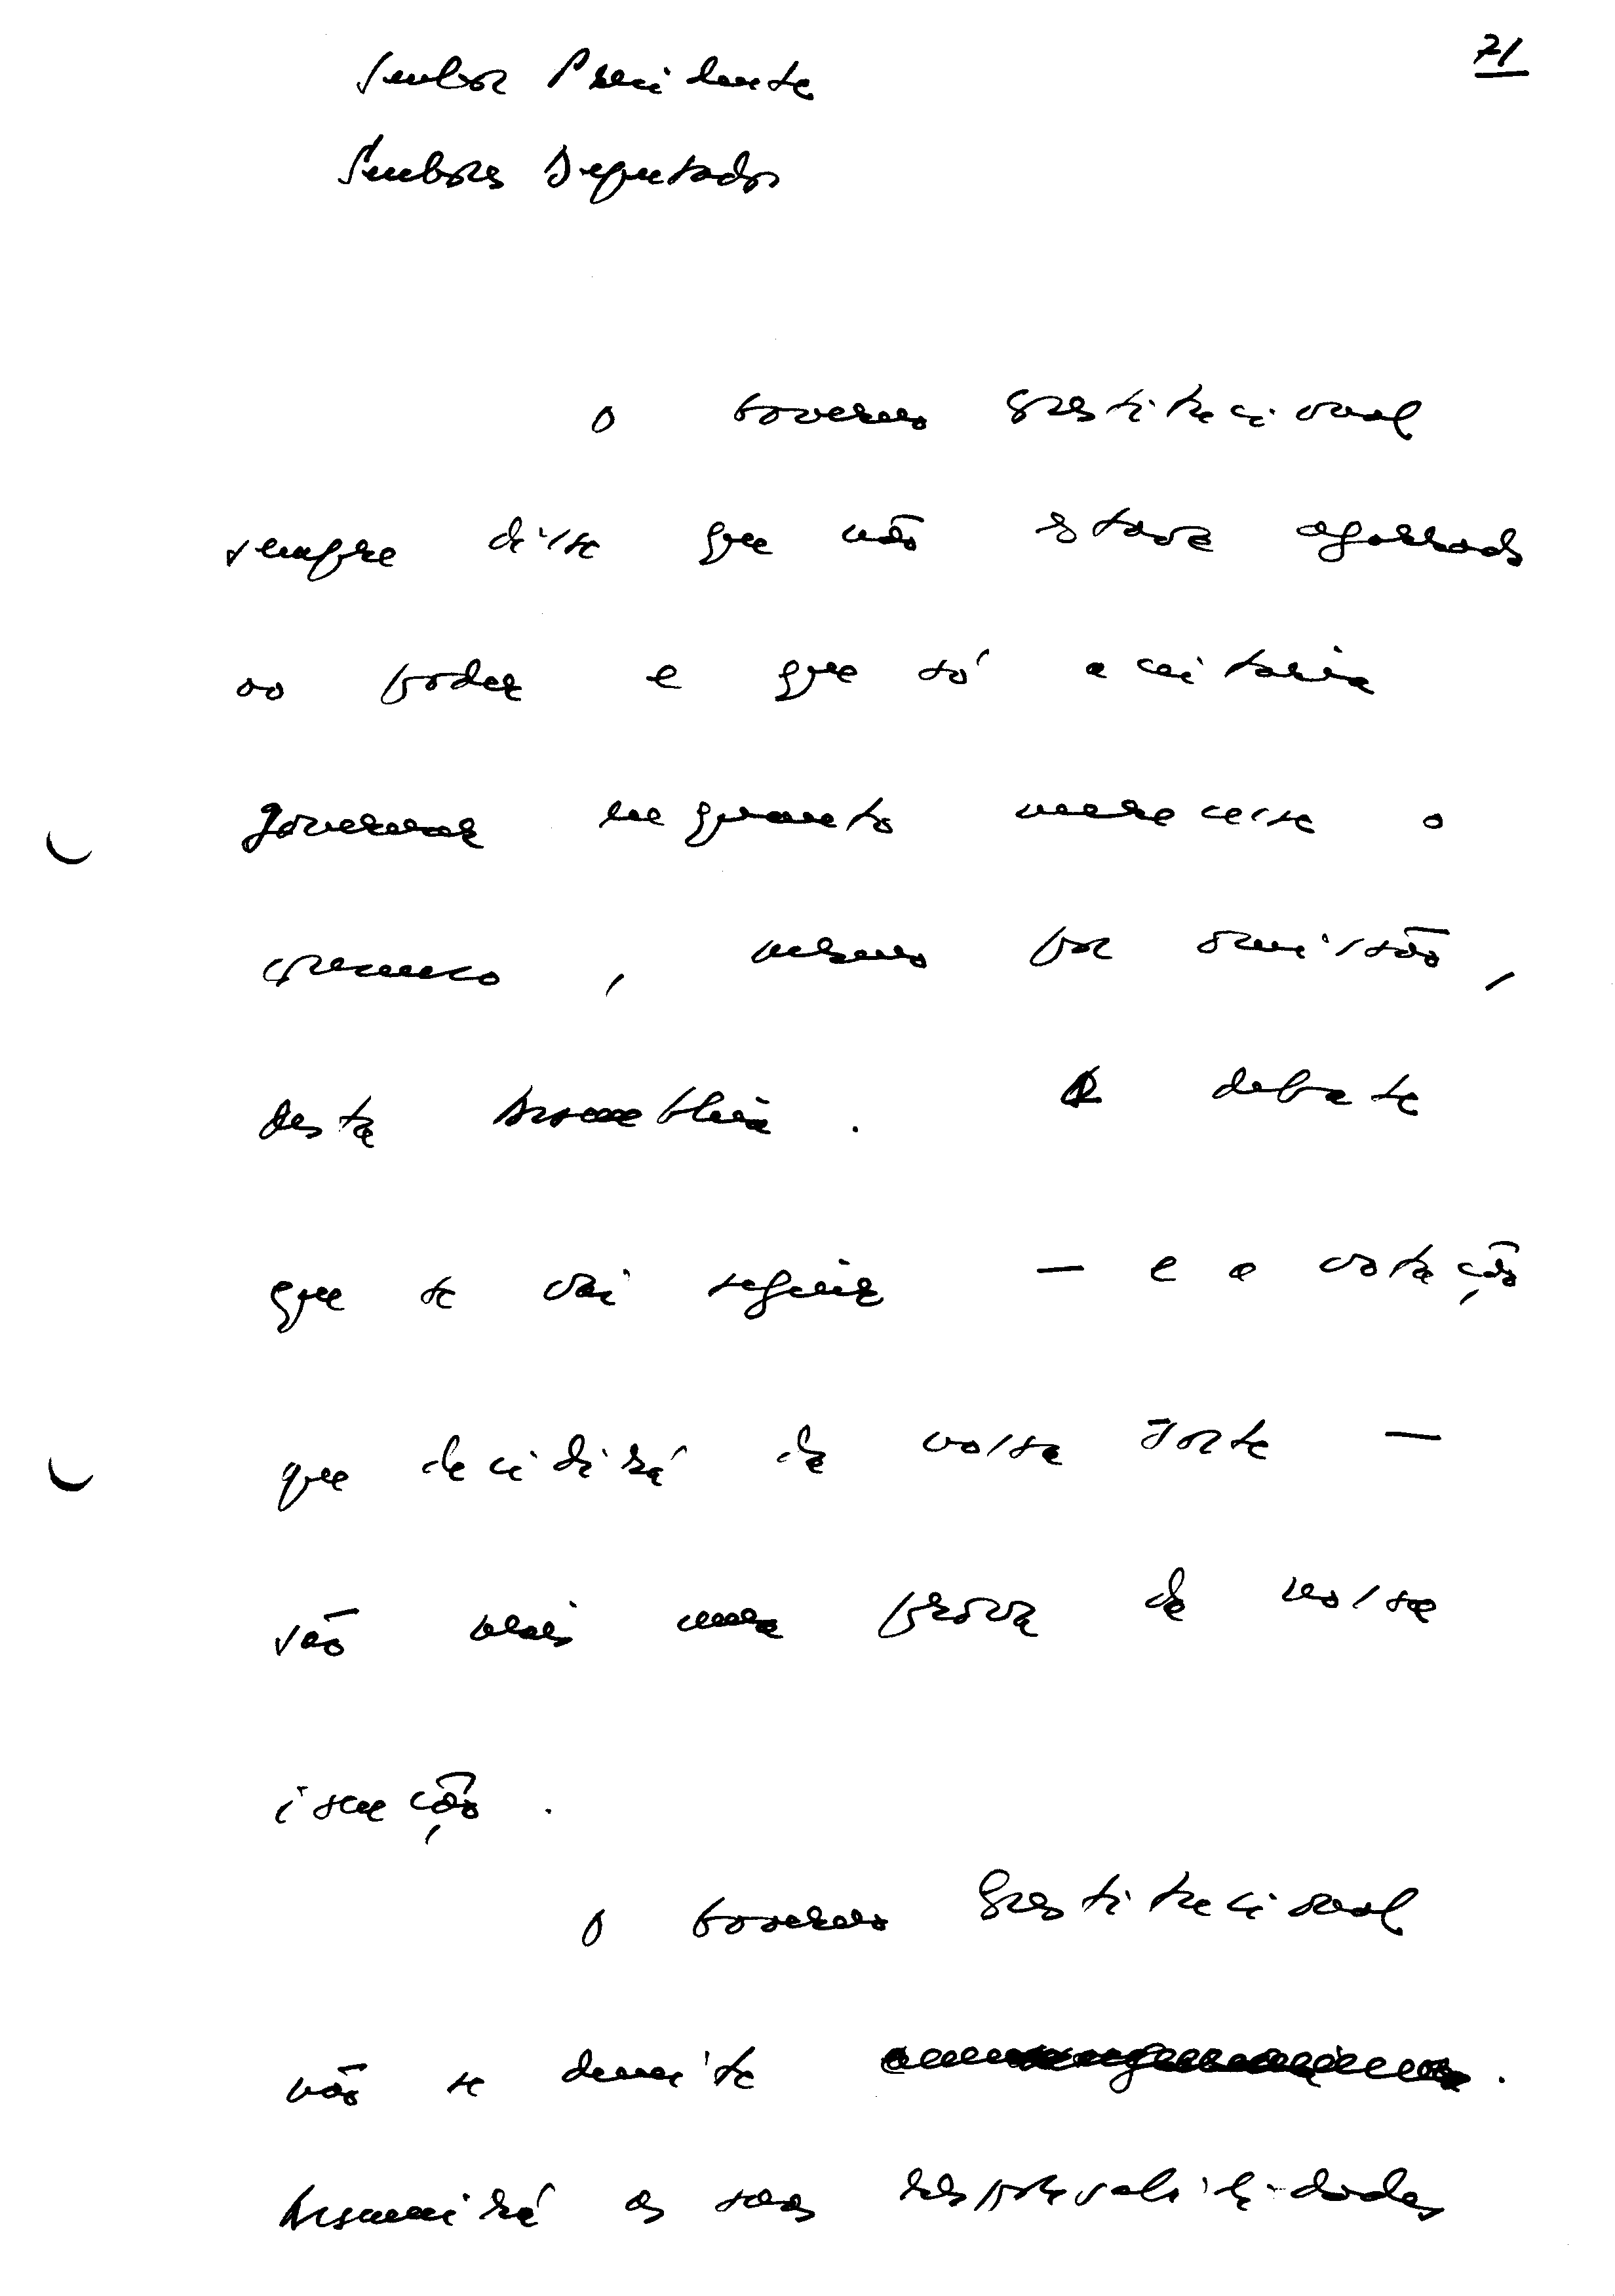 71
Senhor Presidente
Senhores Deputados
O Governo Constitucional
sempre disse que não estava agarrado
ao poder e que só aceitaria
governar enquanto merecesse o
concurso, mesmo por omissão,
desta Assembleia. O debate
que se vai seguir — e a votação
que decidirá da nossa sorte —
são mais uma prova da nossa
isenção.
O Governo Constitucional
não se demite .
Assumirá as suas responsabilidades